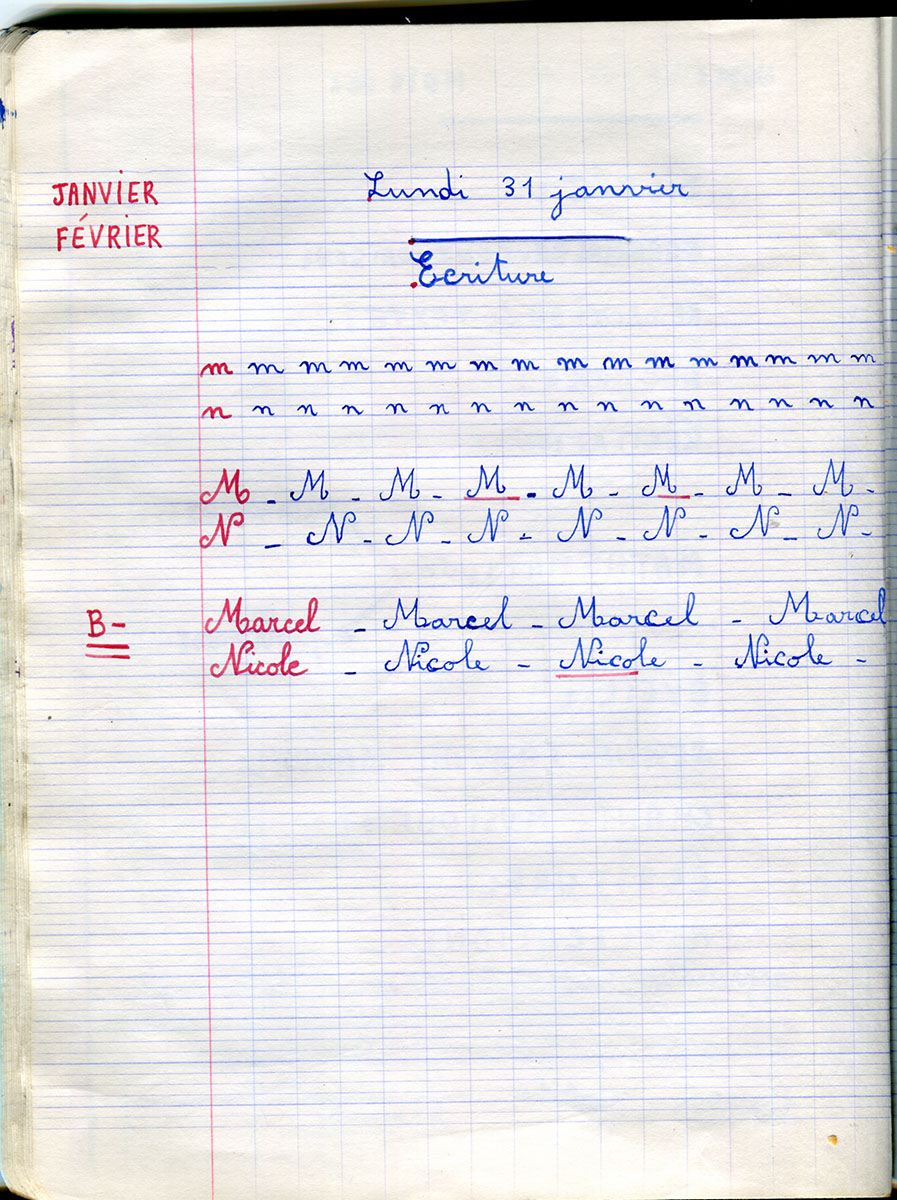 JANVIER
FÉVRIER
Lundi 31 janvier
Ecriture
m m m m m m m m m m m m m m m m
n n n n n n n n n n n n n n n n
M - M - M - M - M - M - M - M -
N - N - N - N - N - N - N - N -
B- Marcel - Marcel - Marcel - Marcel
Nicole - Nicole - Nicole - Nicole -